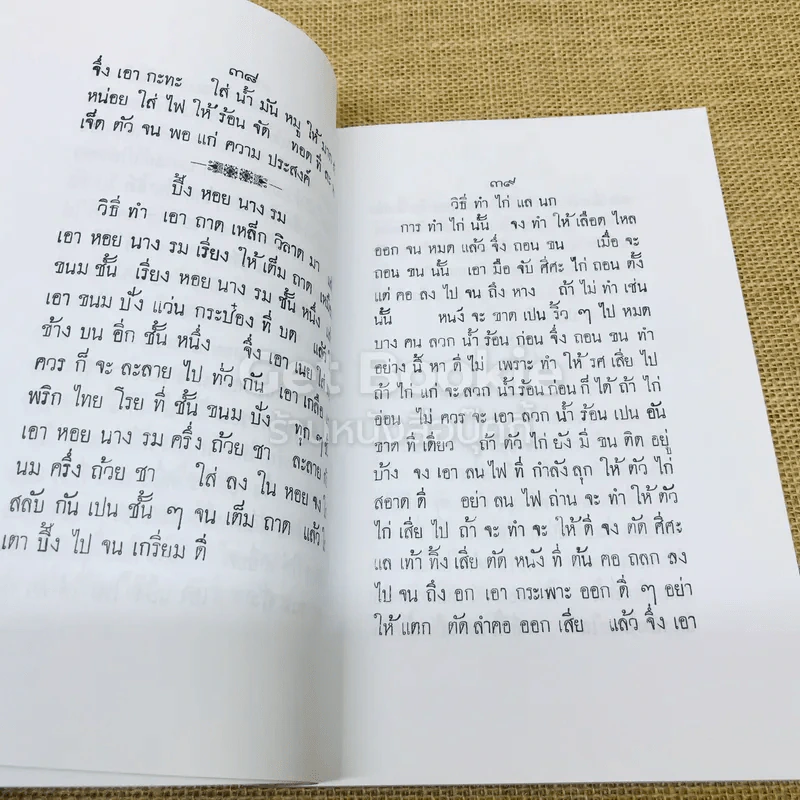 ๓๘
จึ่ง เอา กะทะ ใส่ น้ำ มัน หมู ให้
หน่อย ใส่ ไฟ ให้ ร้อน จัด ทอด ที่
เจ็ด ตัว จน พอ แก่ ความ ประสงค์
ปิ้ง หอย นาง รม
วิธี่ ทำ เอา ถาด เหล็ก วิลาด มา
เอา หอย นาง รม เรี่ยง ให้ เต็ม ถาด
ขนม ชั้น เรี่ยง หอย นาง รม ชั้น หนึ่ง
เอา ขนม ปัง แว่น กระป๋อง ที่ บด แล้ว
ข้าง บน อีก ชั้น หนึ่ง จึ่ง เอา เนย
ควร ก็ จะ ละลาย ไป ทั่ว กัน เอา เกลือ
พริก ไทย โรย ที่ ชั้น ขนม ปัง ทุก ๆ
เอา หอย นาง รม ครึ่ง ถ้วย ชา ละลาย
นม ครึ่ง ถ้วย ชา ใส่ ลง ใน หอย จง
สลับ กัน เปน ชั้น ๆ จน เต็ม ถาด แล้ว
เตา ปิ้ง ไป จน เกรียม ดี่
๓๙
วิธี่ ทำ ไก่ แล นก
การ ทำ ไก่ นั้น จง ทำ ให้ เลือด ไหล
ออก จน หมด แล้ว จึ่ง ถอน ขน เมื่อ จะ
ถอน ขน นั้น เอา มือ จับ ศี่ศะ ไก่ ถอน ตั้ง
แต่ คอ ลง ไป จน ถึง หาง ถ้า ไม่ ทำ เช่น
นั้น หนัง จะ ขาด เปน ริ้ว ๆ ไป หมด
บาง คน ลวก น้ำ ร้อน ก่อน จึ่ง ถอน ขน ทำ
อย่าง นี้ หา ดี่ ไม่ เพราะ ทำ ให้ รศ เสี่ย ไป
ถ้า ไก่ แก่ จะ ลวก น้ำ ร้อน ก่อน ก็ ได้ ถ้า ไก่
อ่อน ไม่ ควร จะ เอา ลวก น้ำ ร้อน เปน อัน
ขาด ที่ เดี่ยว ถ้า ตัว ไก่ ยัง มี่ ขน ติด อยู่
บ้าง จง เอา ลน ไฟ ที่ กำลัง ลุก ให้ ตัว ไก่
สอาด ดี่ อย่า ลน ไฟ ถ่าน จะ ทำ ให้ ตัว
ไก่ เสี่ย ไป ถ้า จะ ทำ จะ ให้ ดี่ จง ตัด ศี่ศะ
แล เท้า ทิ้ง เสี่ย ตัด หนัง ที่ ต้น คอ ถลก ลง
ไป จน ถึง อก เอา กระเพาะ ออก ดี่ ๆ อย่า
ให้ แตก ตัด ลำคอ ออก เสี่ย แล้ว จึ่ง เอา
Get Bookie
ร้านหนังสือบุ๊คกี้